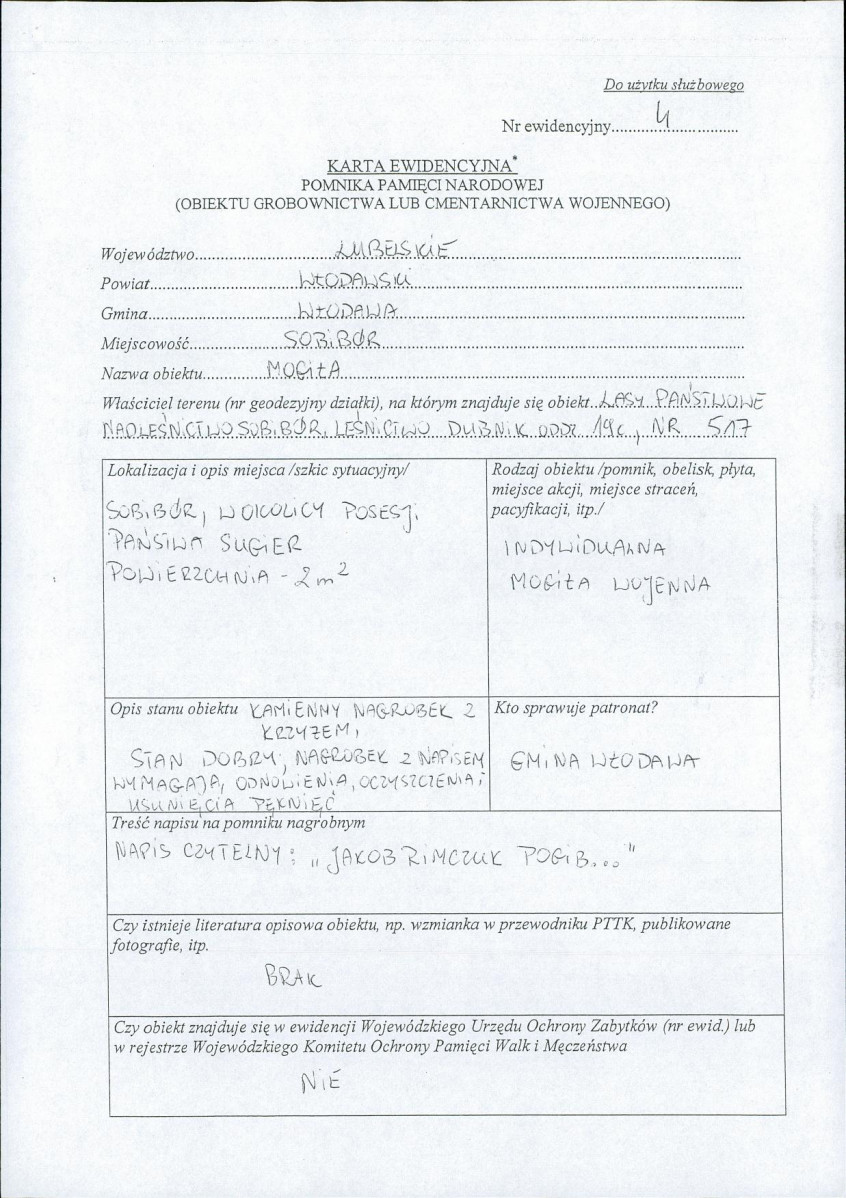 Do użytku służbowego
Nr ewidencyjny.......4.......
KARTA EWIDENCYJNA*
POMNIKA PAMIĘCI NARODOWEJ
(OBIEKTU GROBOWNICTWA LUB CMENTARNICTWA WOJENNEGO)
Województwo.......LUBELSKIE.......
Powiat.......WŁODAWSKI.......
Gmina.......WŁODAWA.......
Miejscowość.......SOBIBÓR.......
Nazwa obiektu.......MOGIŁA.......
Właściciel terenu (nr geodezyjny działki), na którym znajduje się obiekt..LASY PAŃSTWOWE
NADLEŚNICTWO SOBIBÓR, LEŚNICTWO DUBNIK ODDZ. 19c, NR 517
Lokalizacja i opis miejsca /szkic sytuacyjny/
SOBIBÓR, W OKOLICY POSESJI
PAŃSTWA SUGIER
POWIERZCHNIA - 2 m²
Rodzaj obiektu /pomnik, obelisk, płyta,
miejsce akcji, miejsce straceń,
pacyfikacji, itp./
INDYWIDUALNA
MOGIŁA WOJENNA
Opis stanu obiektu KAMIENNY NAGROBEK Z
KRZYŻEM,
STAN DOBRY, NAGROBEK Z NAPISEM
WYMAGAJĄ, ODNOWIENIA, OCZYSZCZENIA i
USUNIĘCIA PĘKNIĘĆ
Kto sprawuje patronat?
GMINA WŁODAWA
Treść napisu na pomniku nagrobnym
NAPIS CZYTELNY: „JAKOB RIMCZUK POGIB..."
Czy istnieje literatura opisowa obiektu, np. wzmianka w przewodniku PTTK, publikowane
fotografie, itp.
BRAK
Czy obiekt znajduje się w ewidencji Wojewódzkiego Urzędu Ochrony Zabytków (nr ewid.) lub
w rejestrze Wojewódzkiego Komitetu Ochrony Pamięci Walk i Męczeństwa
NIE